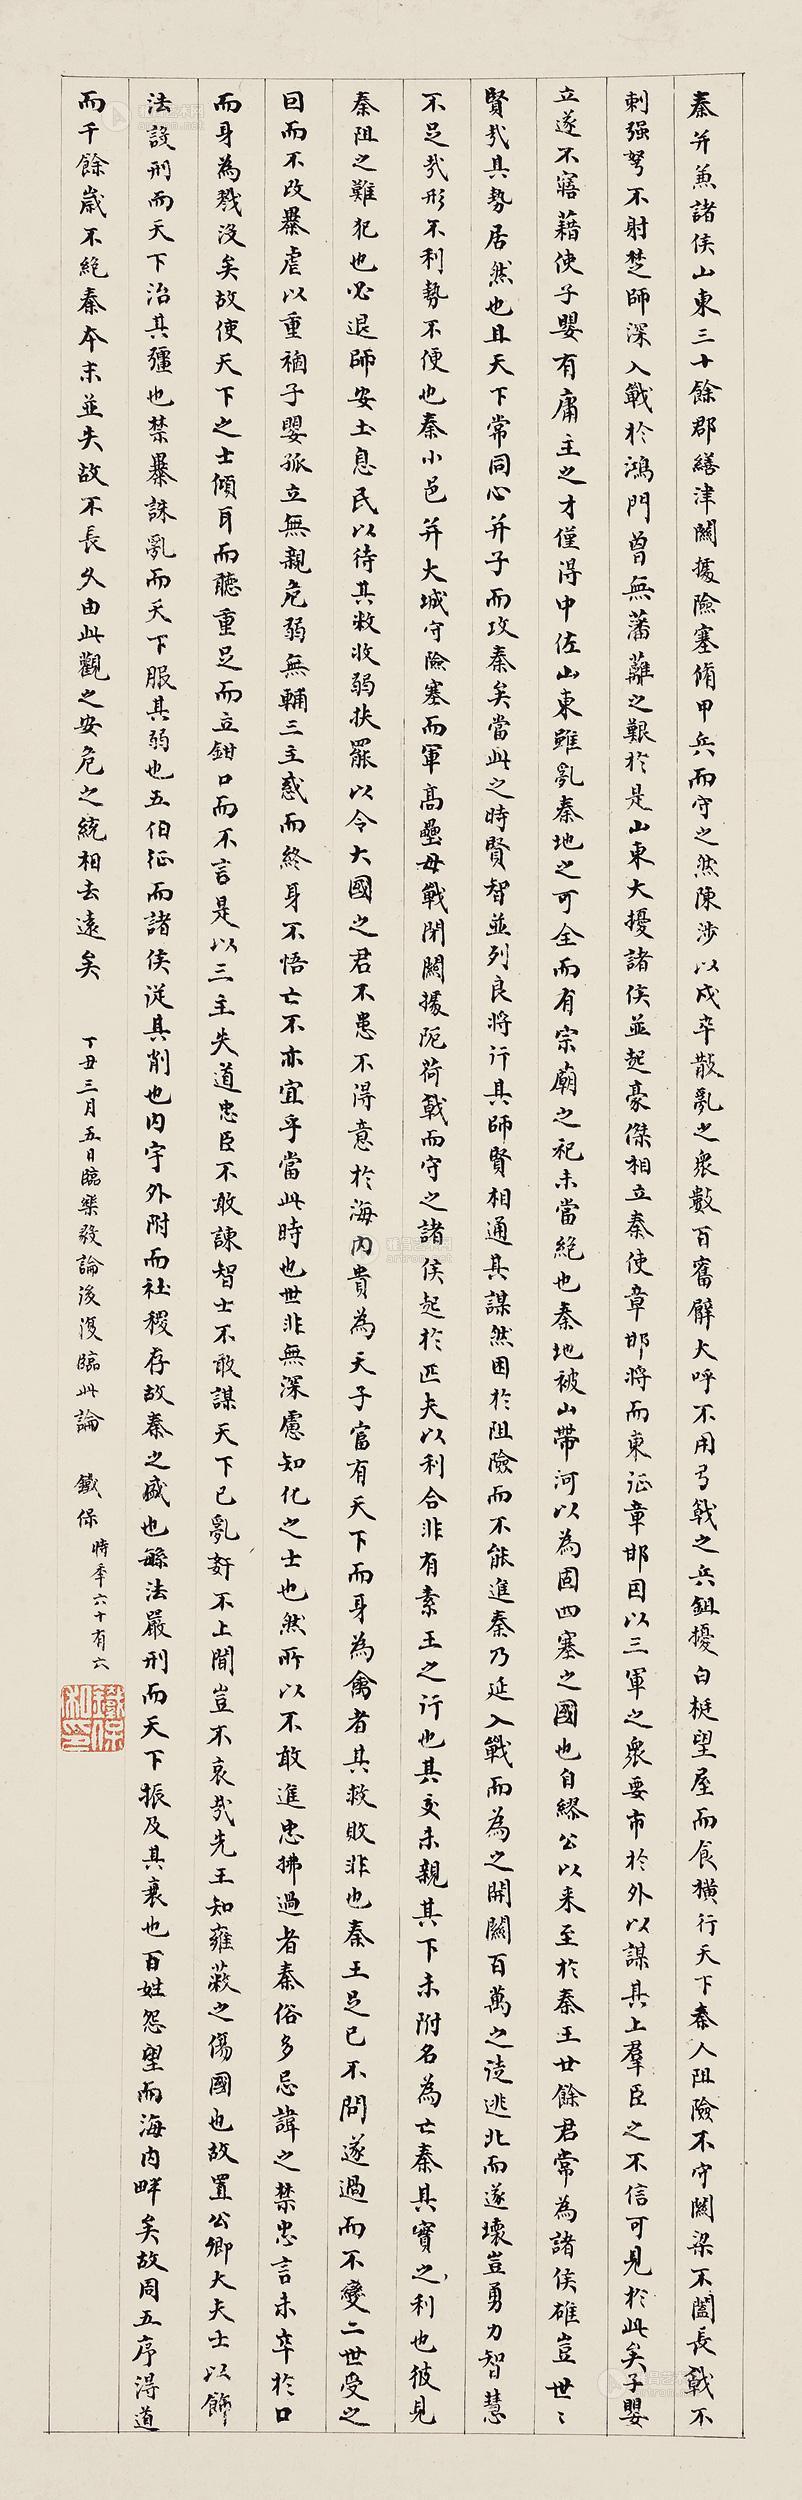 秦并兼諸侯山東三十餘郡繕津關據險塞脩甲兵而守之然陳涉以戍卒散亂之衆數百奮臂大呼不用弓戟之兵鉏擾白梃望屋而食橫行天下秦人阻險不守關梁不闔長戟不
刺强弩不射楚師深入戰於鴻門曾無藩蘺之艱於是山東大擾諸侯並起豪傑相立秦使章邯將而東征章邯因以三軍之衆要市於外以謀其上羣臣之不信可見於此矣子嬰
立遂不寤藉使子嬰有庸主之才僅得中佐山東雖亂秦地之可全而有宗廟之祀未當絕也秦地被山帶河以為固四塞之國也自繆公以来至於秦王廿餘君常為諸侯雄豈世〻
賢哉其勢居然也且天下常同心并子而攻秦矣當此之時賢智並列良將行其師賢相通其謀然困於阻險而不能進秦乃延入戰而為之開關百萬之徒逃北而遂壞豈勇力智慧
不足哉形不利勢不便也秦小邑并大城守險塞而軍高壘毋戰閉關據阨荷戟而守之諸侯起於匹夫以利合非有素王之行也其交未親其下未附名為亡秦其實之利也彼見
秦阻之難犯也必退師安土息民以待其敝收弱扶罷以令大國之君不患不得意於海內貴為天子富有天下而身為禽者其救敗非也秦王足己不問遂過而不變二世受之
因而不改暴虐以重禍子嬰孤立無親危弱無輔三主惑而終身不悟亡不亦宜乎當此時也世非無深慮知化之士也然所以不敢進忠拂過者秦俗多忌諱之禁忠言未卒於口
而身為戮沒矣故使天下之士傾耳而聽重足而立鉗口而不言是以三主失道忠臣不敢諫智士不敢謀天下已亂奸不上聞豈不哀哉先王知雍蔽之傷國也故置公卿大夫士以飾
法設刑而天下治其彊也禁暴誅亂而天下服其弱也五伯征而諸侯從其削也內守外附而社稷存故秦之盛也繁法嚴刑而天下振及其衰也百姓怨望而海內畔矣故周五序得道
而千餘歲不絕秦本末並失故不長久由此觀之安危之統相去遠矣 丁丑三月五日臨樂毅論後復臨此論 鐵保 時年六十有六
鐵保私印